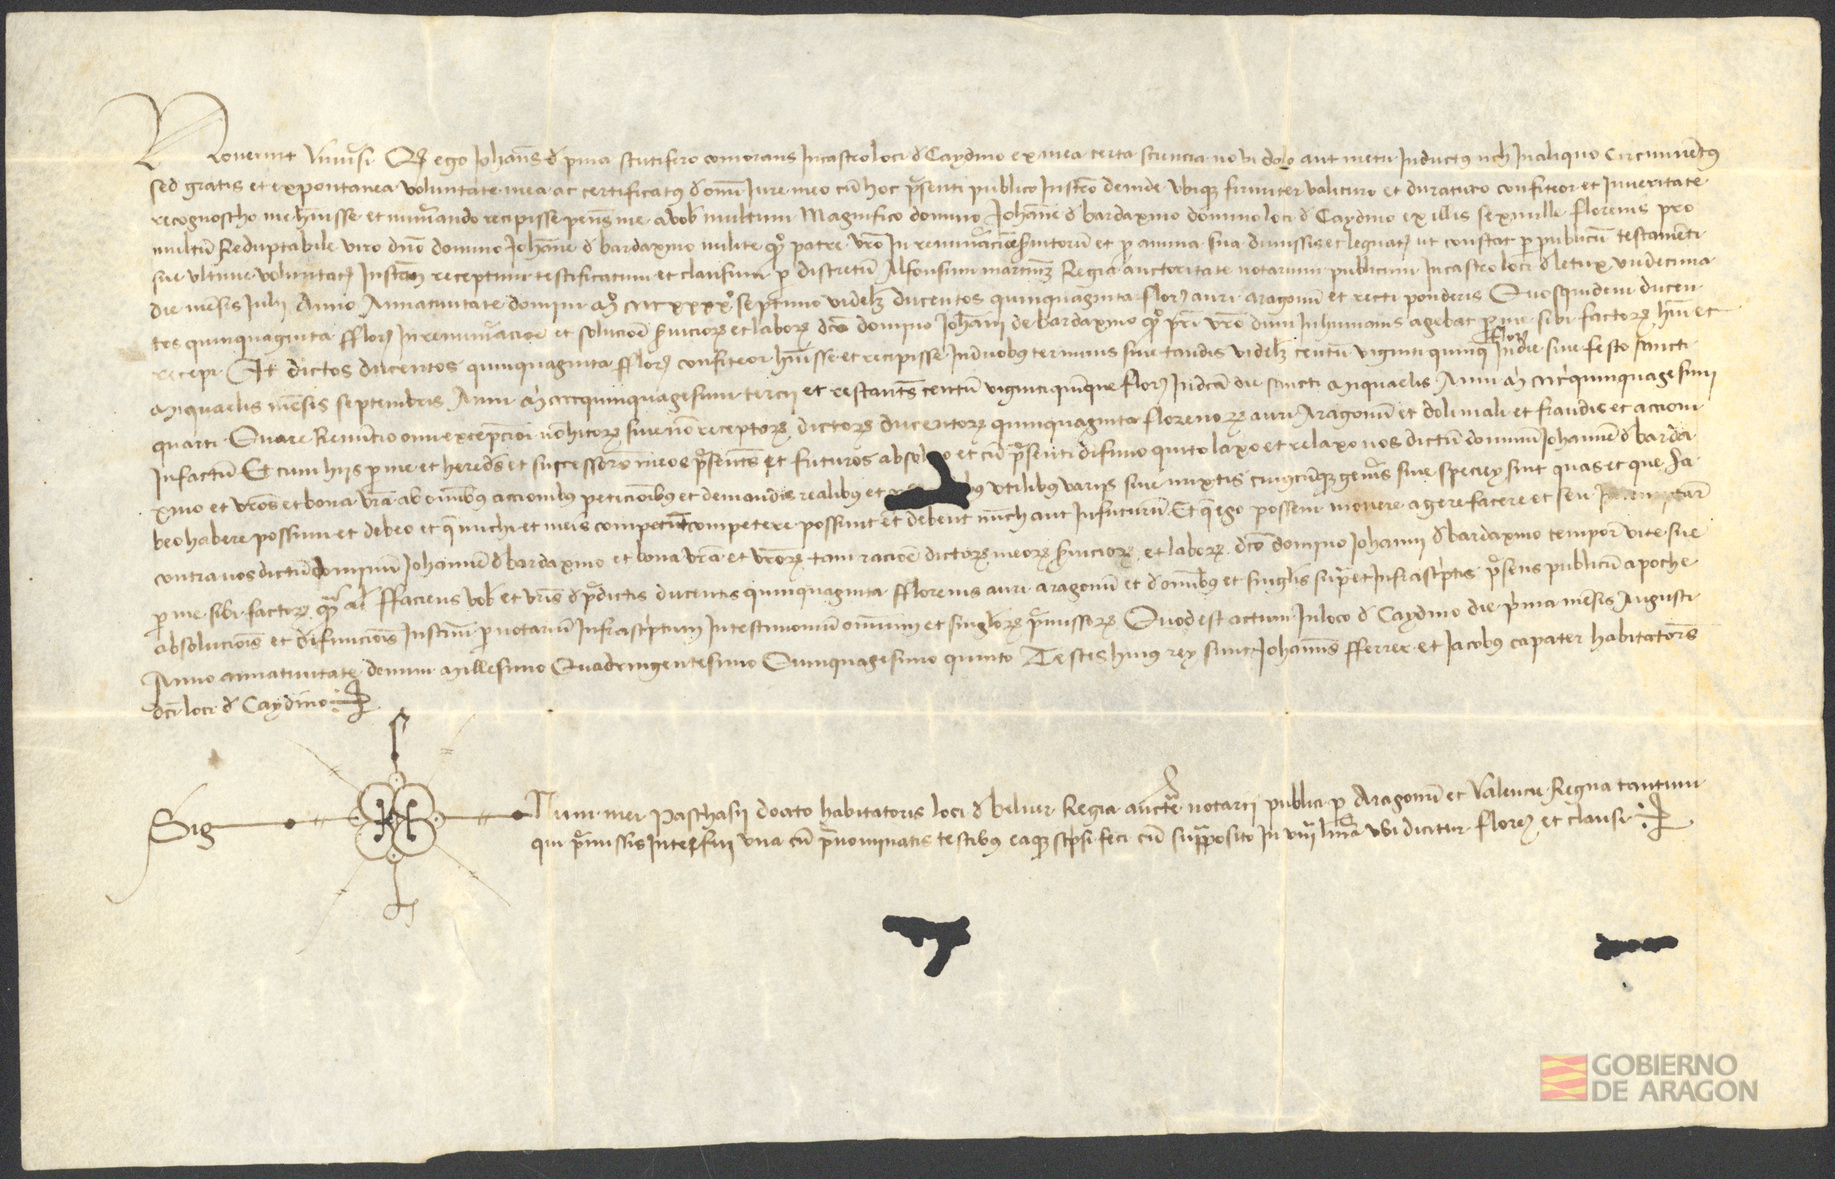 Noverint Universi Q ego Johans d pina scutifero comorans In castro loci d Caydino ex mea certa sciencia no vi dolo aut metu Inductus nch In aliquo Circumventus
sed gratis et expontanea voluntate mea ac certificatus d omi Iure meo cu hoc presenti publico Instro deinde ubiqz firmiter valituro et duraturo confiteor et In veritate
recognoscho me huisse et numerando recipisse penes me a vob multum Magnifico domino Johane d bardaxino domino loci d Caydino ex illis sex mille florenis pro
multu Reduptabile viro dno domino Johane d bardaxino milite qo patre vro In remuneracioe servitoru et p anima sua dimissis et legnat ut constat p publicu testameti
sue ultime voluntat Instm receptum testificatum et clausum p discretu Alfonsum martinz Regia auctoritate notarium publicum In castro loci d letux undecima
die mesis Julii Anno A nativitate domini Mo CCCC xxxxo septimo videlz ducentos quinquaginta flor auri aragonu et recti ponderis Quosquidem ducen
tos quinquaginta fflor In remuneracioe et solucioe serviciorz et laborz dco domino Johani de bardaxino qo pri vro dum In humanis agebat p me sibi factorz hui et
recepi Et dictos ducentos quinquaginta fflor confiteor huisse et recipisse In duobus terminis sive tandis videlz centu viginti quinqz flors In die sive festo sancti
Myquaelis mesis septembris Anni M CCCC quinquagesimi tercii et restants centu viginti quinque flor In dca die sancti Myquaelis Anni M CCCC quinquagesimi
quarti Quare Renucio omi excepcioi no hitorz sive no receptorz dictorz ducentorz quinquaginta florenorz auri Aragonu et doli mali et fraudis et accioni
In factu Et cum hiis p me et hereds et successors meos presents et futuros absolvo et cu presenti difinio quito laxo et relaxo vos dictu dominu Johane d barda
xino et vros et bona vra ab omibus accionibus peticioibus et demandis realibus et utilibus variis sive mixtis cuiuscuqz generis sive speciey sint quas et que ha
beo habere possum et debeo et q michi et meis competut competere possunt et debent nuch aut In futurum Et q ego possem movere agere facere et seu
contra vos dictu dominu Johane d bardaxino et bona vra et vrorz tam racioe dictorz meorz serviciorz et laborz dco domino Johani d bardaxino tempor vite sue
p me sibi factorz qm al ffaciens vob et vris d predictis ducentis quinquaginta fflorenis auri aragonu et d omibus et singlis supra et Infrascriptis presens publicu apoche
absolucois et difinicois Instm p notariu Infrascriptum In testimoniu omium et singlorz premissorz Quod est actum In loco d Caydino die prima mesis Augusti
Anno a nativitate domini Millesimo Quadringentesimo Quinquagesimo quinto Testes huius rey sunt Johans fferrer et Jacobus capater habitators
dci loci d Caydino
Sig num mei Paschasii doato habitatoris loci d belver Regia aucte notarii publici p Aragonu et Valencie Regna tantum
qui premissis Interfui una cu prenominatis testibus eaqz scripsi feci cu suprapposito In viii linea ubi dicitur flors et clausi
GOBIERNO
DE ARAGON